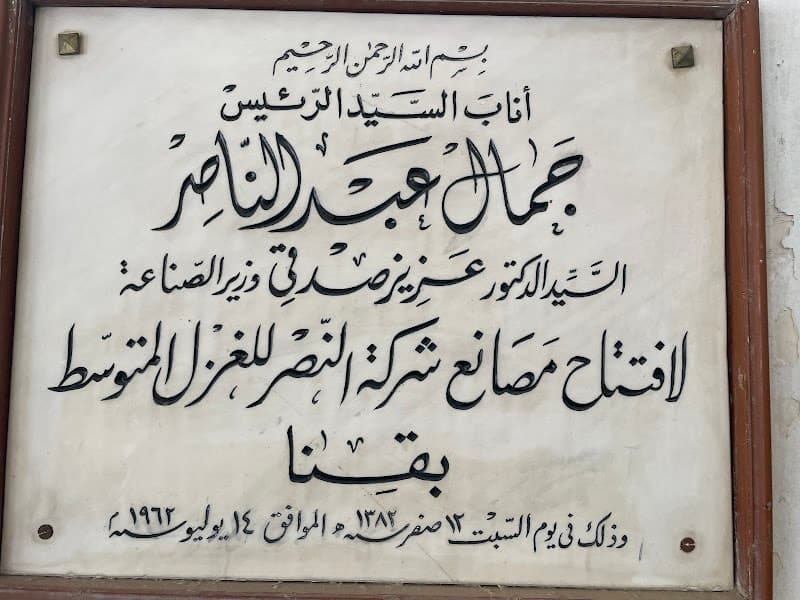 بسم الله الرحمن الرحيم
أناب السيد الرئيس
جمال عبد الناصر
السيد الدكتور عزيز صدقي وزير الصناعة
لافتتاح مصانع شركة النصر للغزل المتوسط
بقنا
وذلك في يوم السبت ١٢ صفر سنة ١٣٨٢ هـ الموافق ١٤ يوليو سنة ١٩٦٢